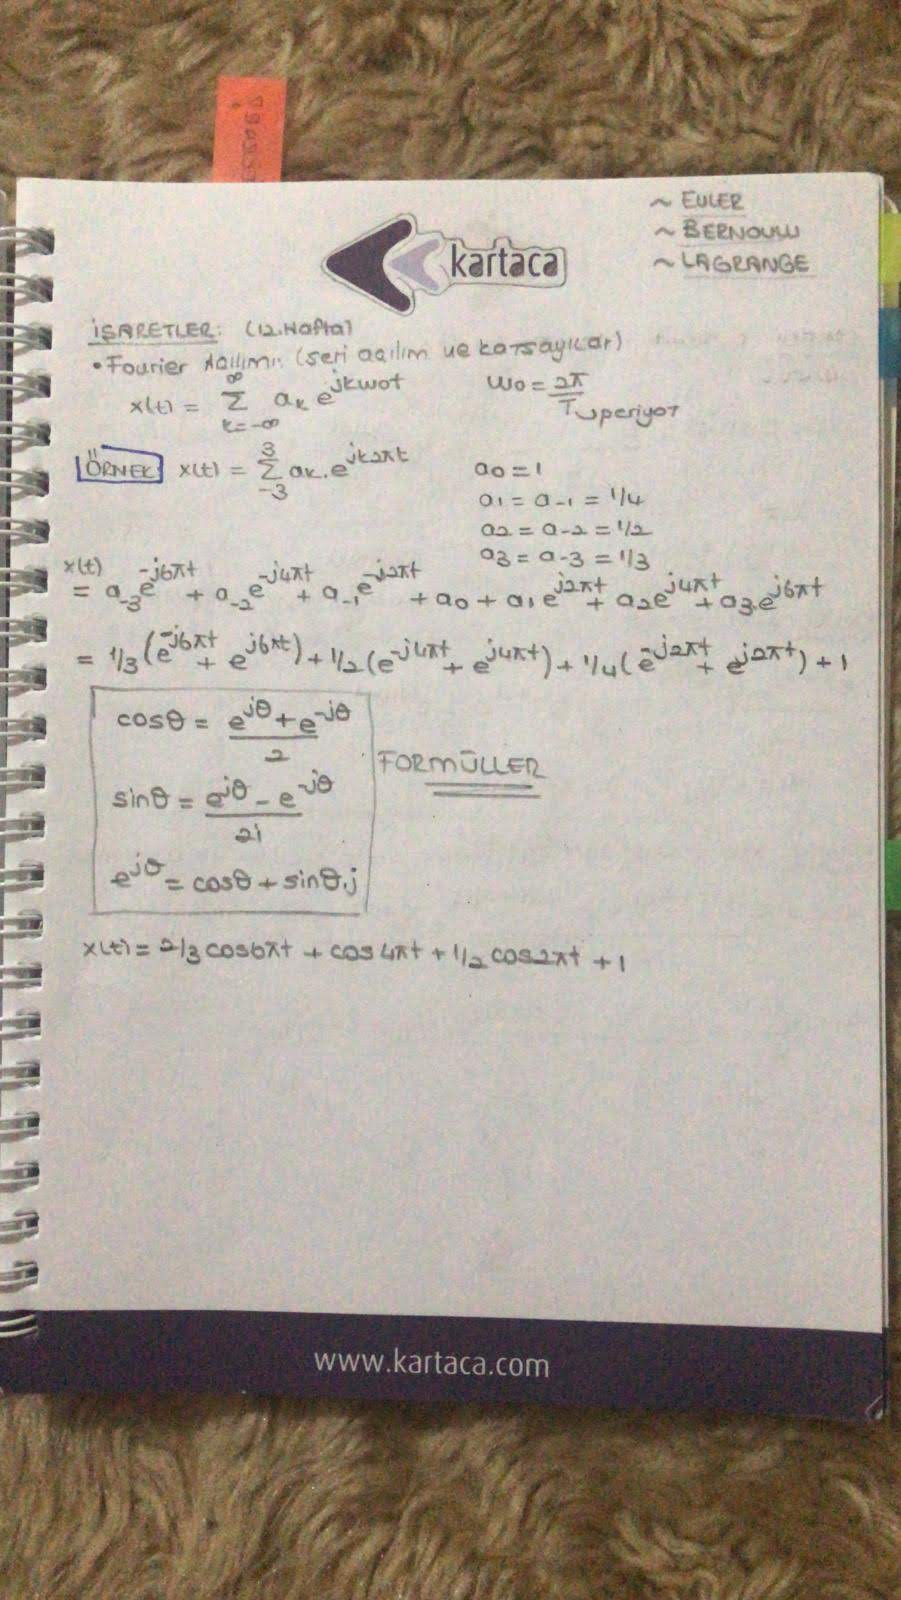 ~ EULER
~ BERNOULLI
~ LAGRANGE
kartaca
İŞARETLER: (12. Hafta)
• Fourier Açılımı: (seri açılım ve katsayılar)
x(t) = ∞ Σ k=-∞ ak e^jkwot wo = 2π/T → periyot
ÖRNEK x(t) = 3 Σ -3 ak.e^jk2πt a0 = 1
a1 = a-1 = 1/4
a2 = a-2 = 1/2
a3 = a-3 = 1/3
x(t)
= a-3 e^-j6πt + a-2 e^-j4πt + a-1 e^-j2πt + a0 + a1 e^j2πt + a2 e^j4πt + a3.e^j6πt
= 1/3 (e^-j6πt + e^j6πt) + 1/2 (e^-j4πt + e^j4πt) + 1/4 (e^-j2πt + e^j2πt) + 1
cosθ = (e^jθ + e^-jθ)/2
FORMÜLLER
sinθ = (e^jθ - e^-jθ)/2j
e^jθ = cosθ + sinθ.j
x(t) = 2/3 cos6πt + cos4πt + 1/2 cos2πt + 1
www.kartaca.com